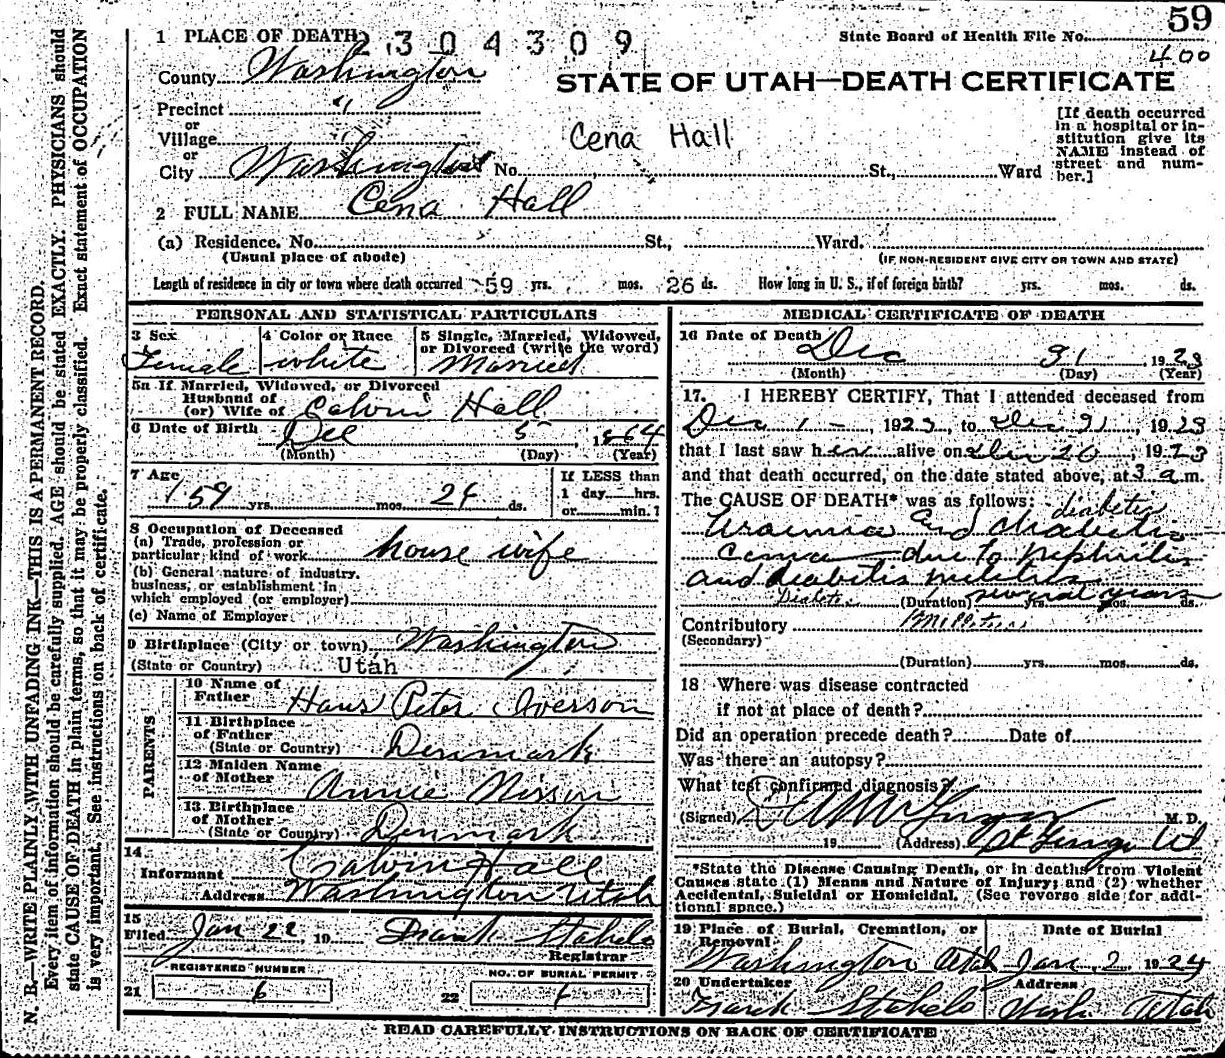 59
1 PLACE OF DEATH 2304309 State Board of Health File No.
400
County Washington
STATE OF UTAH—DEATH CERTIFICATE
Precinct "
or
Village
or
City Washington No. St., Ward
Cena Hall
[If death occurred
in a hospital or in-
stitution give its
NAME instead of
street and num-
ber.]
2 FULL NAME Cena Hall
(a) Residence. No. St., Ward.
(Usual place of abode) (IF NON-RESIDENT GIVE CITY OR TOWN AND STATE)
Length of residence in city or town where death occurred 59 yrs. mos. 26 ds. How long in U. S., if of foreign birth? yrs. mos. ds.
PERSONAL AND STATISTICAL PARTICULARS
3 Sex 4 Color or Race 5 Single, Married, Widowed,
or Divorced (write the word)
Female white Married
5a If Married, Widowed, or Divorced
Husband of
(or) Wife of Calvin Hall
6 Date of Birth Dec 5, 1864
(Month) (Day) (Year)
7 Age 59 yrs. mos. 24 ds.
If LESS than
1 day hrs.
or min.?
8 Occupation of Deceased
(a) Trade, profession or
particular kind of work house wife
(b) General nature of industry,
business, or establishment in
which employed (or employer)
(c) Name of Employer
9 Birthplace (City or town) Washington
(State or Country) Utah
PARENTS
10 Name of
Father Hans Peter Iverson
11 Birthplace
of Father
(State or Country) Denmark
12 Maiden Name
of Mother Annie Nisson
13 Birthplace
of Mother
(State or Country) Denmark
14
Informant Calvin Hall
Address Washington Utah
15
Filed Jan 22, 19 Frank Staheli
Registrar
REGISTERED NUMBER NO. OF BURIAL PERMIT
21 6 22
MEDICAL CERTIFICATE OF DEATH
16 Date of Death Dec 31 1923
(Month) (Day) (Year)
17. I HEREBY CERTIFY, That I attended deceased from
Dec 1 -, 1923, to Dec 31, 1923
that I last saw her alive on Dec 26, 1923
and that death occurred, on the date stated above, at 3 a.m.
The CAUSE OF DEATH* was as follows:
diabetic
Uraemia and diabetic
coma — due to nephritis
and diabetis melitus
Diabetes (Duration) several years yrs. mos. ds.
Contributory Millitus
(Secondary)
(Duration) yrs. mos. ds.
18 Where was disease contracted
if not at place of death?
Did an operation precede death? Date of
Was there an autopsy?
What test confirmed diagnosis?
(Signed) M. D.
19 (Address) St George Ut
*State the Disease Causing Death, or in deaths from Violent
Causes state (1) Means and Nature of Injury; and (2) whether
Accidental, Suicidal or Homicidal. (See reverse side for addi-
tional space.)
19 Place of Burial, Cremation, or
Removal Date of Burial
Washington Utah Jan. 2 1924
20 Undertaker Address
Frank Staheli Wash. Utah
READ CAREFULLY INSTRUCTIONS ON BACK OF CERTIFICATE
N. B.—WRITE PLAINLY WITH UNFADING INK—THIS IS A PERMANENT RECORD.
Every item of information should be carefully supplied. AGE should be stated EXACTLY. PHYSICIANS should
state CAUSE OF DEATH in plain terms, so that it may be properly classified. Exact statement of OCCUPATION
is very important. See instructions on back of certificate.